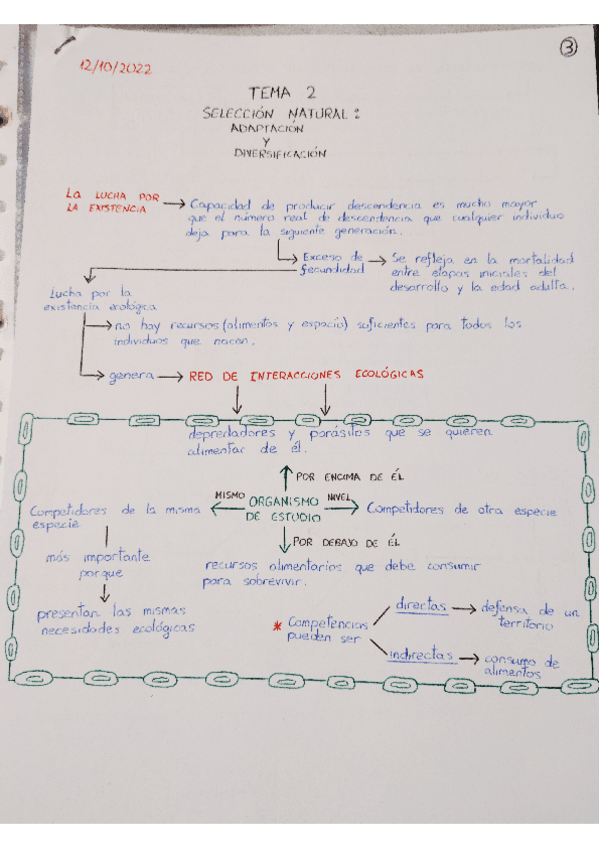 3
12/10/2022
TEMA 2
SELECCIÓN NATURAL:
ADAPTACIÓN
Y
DIVERSIFICACIÓN
La LUCHA POR
LA EXISTENCIA
Capacidad de producir descendencia es mucho mayor
que el número real de descendencia que cualquier individuo
deja para la siguiente generación.
Exceso de
fecundidad
Se refleja en la mortalidad
entre etapas iniciales del
desarrollo y la edad adulta.
Lucha por la
existencia ecológica
no hay recursos (alimentos y espacio) suficientes para todos los
individuos que nacen.
genera
RED DE INTERACCIONES ECOLÓGICAS
depredadores y parásitos que se quieren
alimentar de él.
POR ENCIMA DE ÉL
Competidores de la misma
especie
MISMO
ORGANISMO
DE ESTUDIO
NIVEL
Competidores de otra especie
POR DEBAJO DE ÉL
más importante
porque
recursos alimentarios que debe consumir
para sobrevivir.
presentan las mismas
necesidades ecológicas
* Competencias
pueden ser
directas
defensa de un
territorio
indirectas
consumo de
alimentos